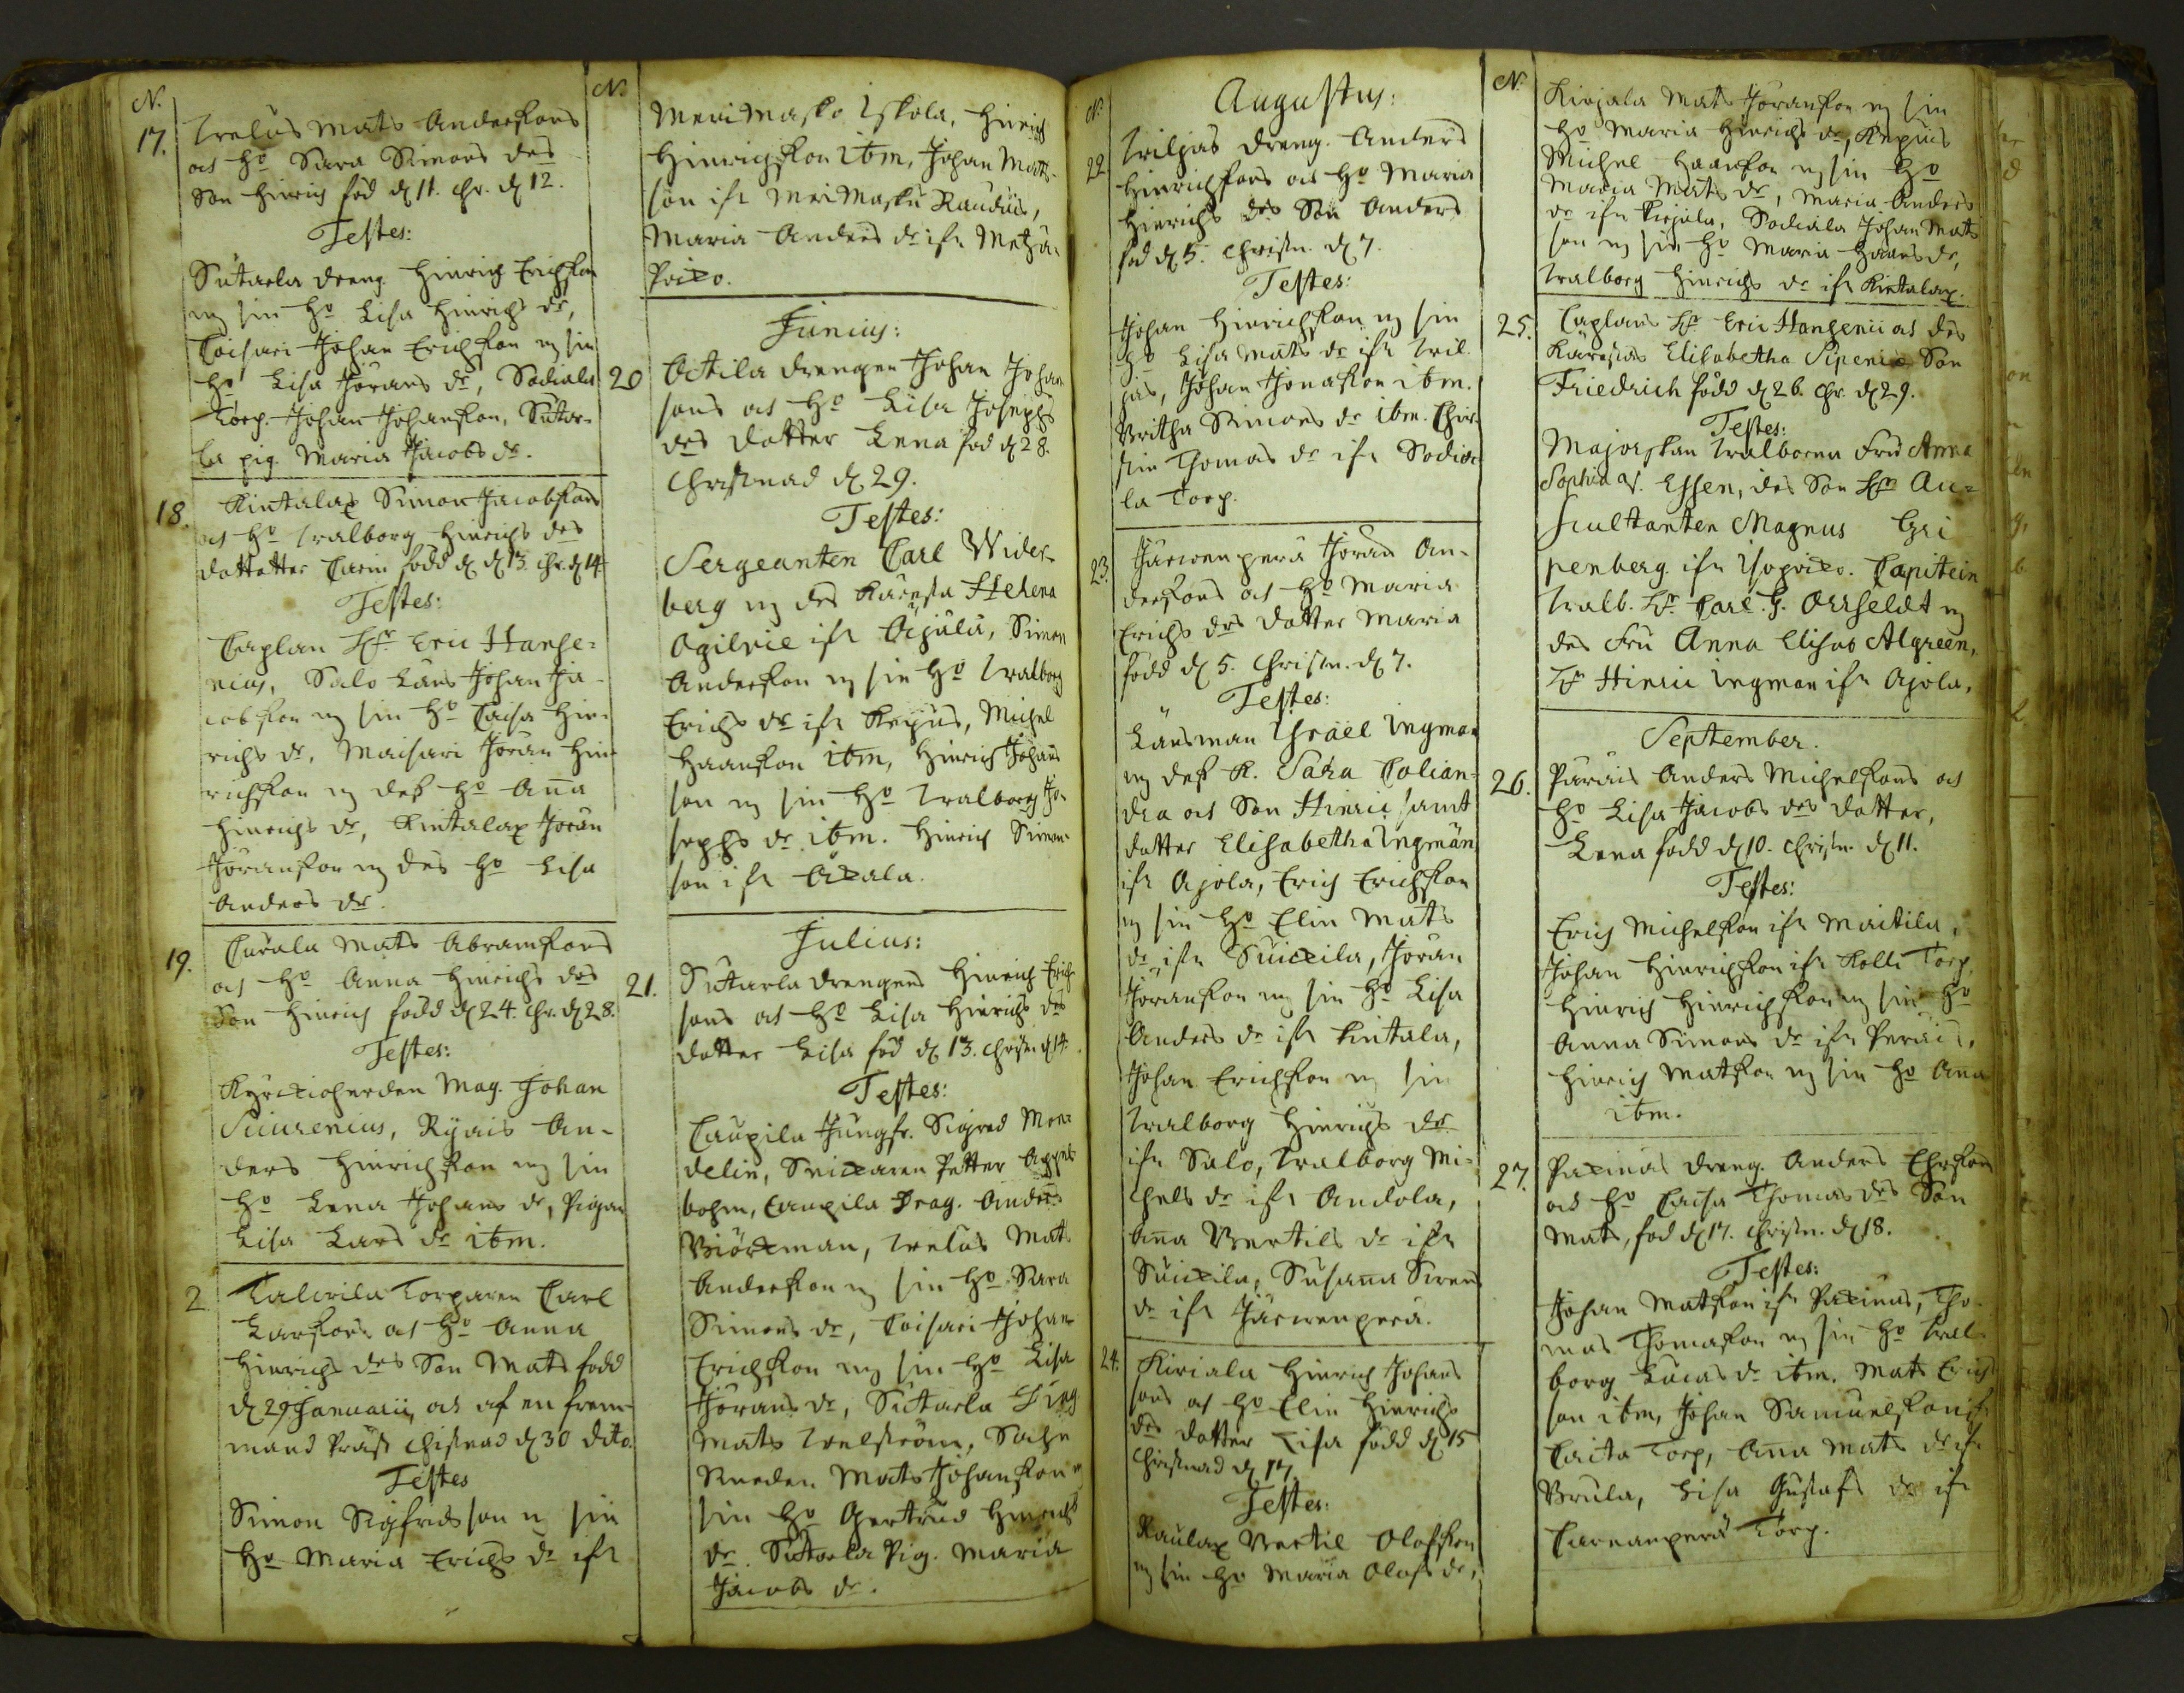 N.
17. Trelus Mats Andersons
och Ho Sara Simons des
Son Hinrich föd d 11. Chr. d 12.
Testes:
Sutarla dreng Hinrich Erichson
m sin Ho Lisa Hinrichs dr,
Coisari Johan Erichson m sin
Ho Lisa Jörans dr, Sodiala
Torp. Johan Johanson, Sutar-
la pig. Maria Jacobs dr.
18. Kintalax Simon Jacobsons
och Ho Walborg Hinrichs des
dottotter Carin född d 13. Chr. d 14
Testes:
Caplan Hr Eric Hanse-
nius, Salo Lars Johan Ja-
cobson m sin Ho Caisa Hin-
richs dr, Maisari Jöran Hin-
richson m des Ho Anna
Hinrichs dr, Kintalax Jöran
Jöranson m des Ho Lisa
Anders dr.
19. Carala Mats Abramsons
och Ho Anna Hinrichs des
Son Hinrich född d 24. Chr. d 28.
Testes:
Kyrckioherden Mag. Johan
Suurenius, Ryäis An-
ders Hinrichson m sin
Ho Lena Johans dr, Pigan
Lisa Lars dr ibm.
2 Talwila Torparen Carl
Larsons och Ho Anna
Hinrichs des Son Mats född
d 29 Januarii, och af en frem-
mand Präst Christnad d 30 dito.
Testes
Simon Sigfridsson m sin
Ho Maria Erichs dr ifr
N.
Merimasko Iskola, Hinrich
Hinrichson ibm, Johan Mats-
son ifr Merimasku Raudais,
Maria Anders dr ifr Metzä-
Junius:
20 Ottila drengen Johan Johan
sons och Ho Lisa Josephs
des dotter Lena föd d 28.
Christnad d 29.
Testes:
Sergeanten Carl Wider-
berg m des Käresta Helena
Ogilwie ifr Äijälä, Simon
Anderson m sin Ho Walborg
Erichs dr ifr Kepus, Michel
Haanson ibm, Hinrich Johans
son m sin Ho Walborg Jo-
sephs dr ibm. Hinrich Simon-
son ifr
Julius:
21. Sutarla drengens Hinrich Erich
sons och Ho Lisa Hinrichs des
dotter Lisa föd d 13. Christn. d 14.
Testes:
Caupila Jungfr. Sigred Mon-
delin, Snickaren Petter Appel
bohm, Caupila Drag. Anders
Biörkman, Trelus Mats
Anderson m sin Ho Sara
Simons dr, Coisari Johan
Erichson m sin Ho Lisa
Jörans dr, Sutarla Drag
Mats Welström,
Mats Johanson m
sin Ho Gertrud Hinrichs
dr. Sutarla Pig. Maria
Jacobs dr.
N.
Augustus:
22. Wiljas dreng. Anders
Hinrichsons och Ho Maria
Hinrichs des Son Anders
föd d 5. Christn. d 7.
Testes:
Johan Hinrichson m sin
Ho Lisa Mats dr ifr Wil-
jas, Johan Jonason ibm.
Britha Simons dr ibm. Chir-
stin Thomas dr ifr Sodia-
la Torp.
23. Järwenperä Jöran An-
dersons och Ho Maria
Erichs des dotter Maria
född d 5. Christn. d 7.
Testes:
Länsman Israël Ingman
m dess K. Sara Colian-
dra och Son Hinric samt
dotter Elisabetha Ingman
ifr Ajola, Erich Erichson
m sin Ho Elin Mats
dr ifr Suickila, Jöran
Jöranson m sin Ho Lisa
Anders dr ifr Kintala,
Johan Erichson m sin
Walborg Hinrichs dr
ifr Salo, Walborg Mi-
chels dr ifr Andola,
Anna Bertils dr ifr
Suickila, Susanna Simons
dr ifr Järwenperä.
24. Kiriala Hinrich Johans
sons och Ho Elin Hinrichs
des dotter Lisa född d 15
Christnad d 17.
Testes:
Raulax Bertil Olofson
m sin Ho Maria Olofs dr,
N.
Kirjala Mats Jöranson m sin
Ho Maria Hinrichs dr, Kepus
Michel Haanson m sin Ho
Maria Mats dr, Maria Anders
dr ifr Kirjala, Sodiala Johan Mats
son m sin Ho Maria Hans dr,
Walborg Hinrichs dr ifr Kintalax.
25. Caplans Hr Eric Hansenii och des
Kärestas Elisabetha Pipenia Son
Friedrich född d 26. Chr. d 29.
Testes:
Majorskan Walborna Fru Anna
Sophia v. Essen, des Son Hr Au-
scultanten Magnus Gri
penberg. ifr Isopriko. Capitein
Walb. Hr Carl G. Ollfeldt m
des Fru Anna Elisab Algreen,
Hr Hinric Ingman ifr Ajola,
September.
26. Päräis Anders Michelsons och
Ho Lisa Jacobs des dotter,
Lena född d 10. Christn. d 11.
Testes:
Erich Michelson ifr Maitila,
Johan Hinrichson ifr Kolli Torp,
Hinrich Hinrichson m sin Ho
Anna Simons dr ifr Peräis,
Hinrich Matson m sin Ho Anna
ibm.
27. Paxinas dreng. Anders
och Ho Caisa Thomas des Son
Mats, föd d 17. Christn. d 18.
Testes:
Johan Matson ifr Paxinas, Tho-
mas Thomason m sin Ho Wal-
borg Lucas dr ibm. Mats Erich
son ibm, Johan Samuelson ifr
Caita Torp, Anna Mats dr ifr
Brula, Lisa Gustafs dr ifr
Carvanperä Torp.